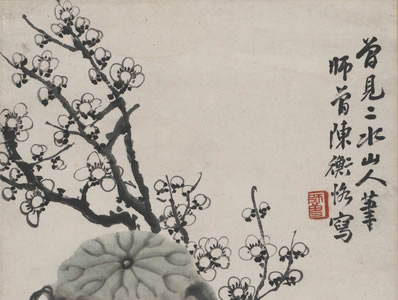 曾見二水山人筆
師曾陳衡恪寫